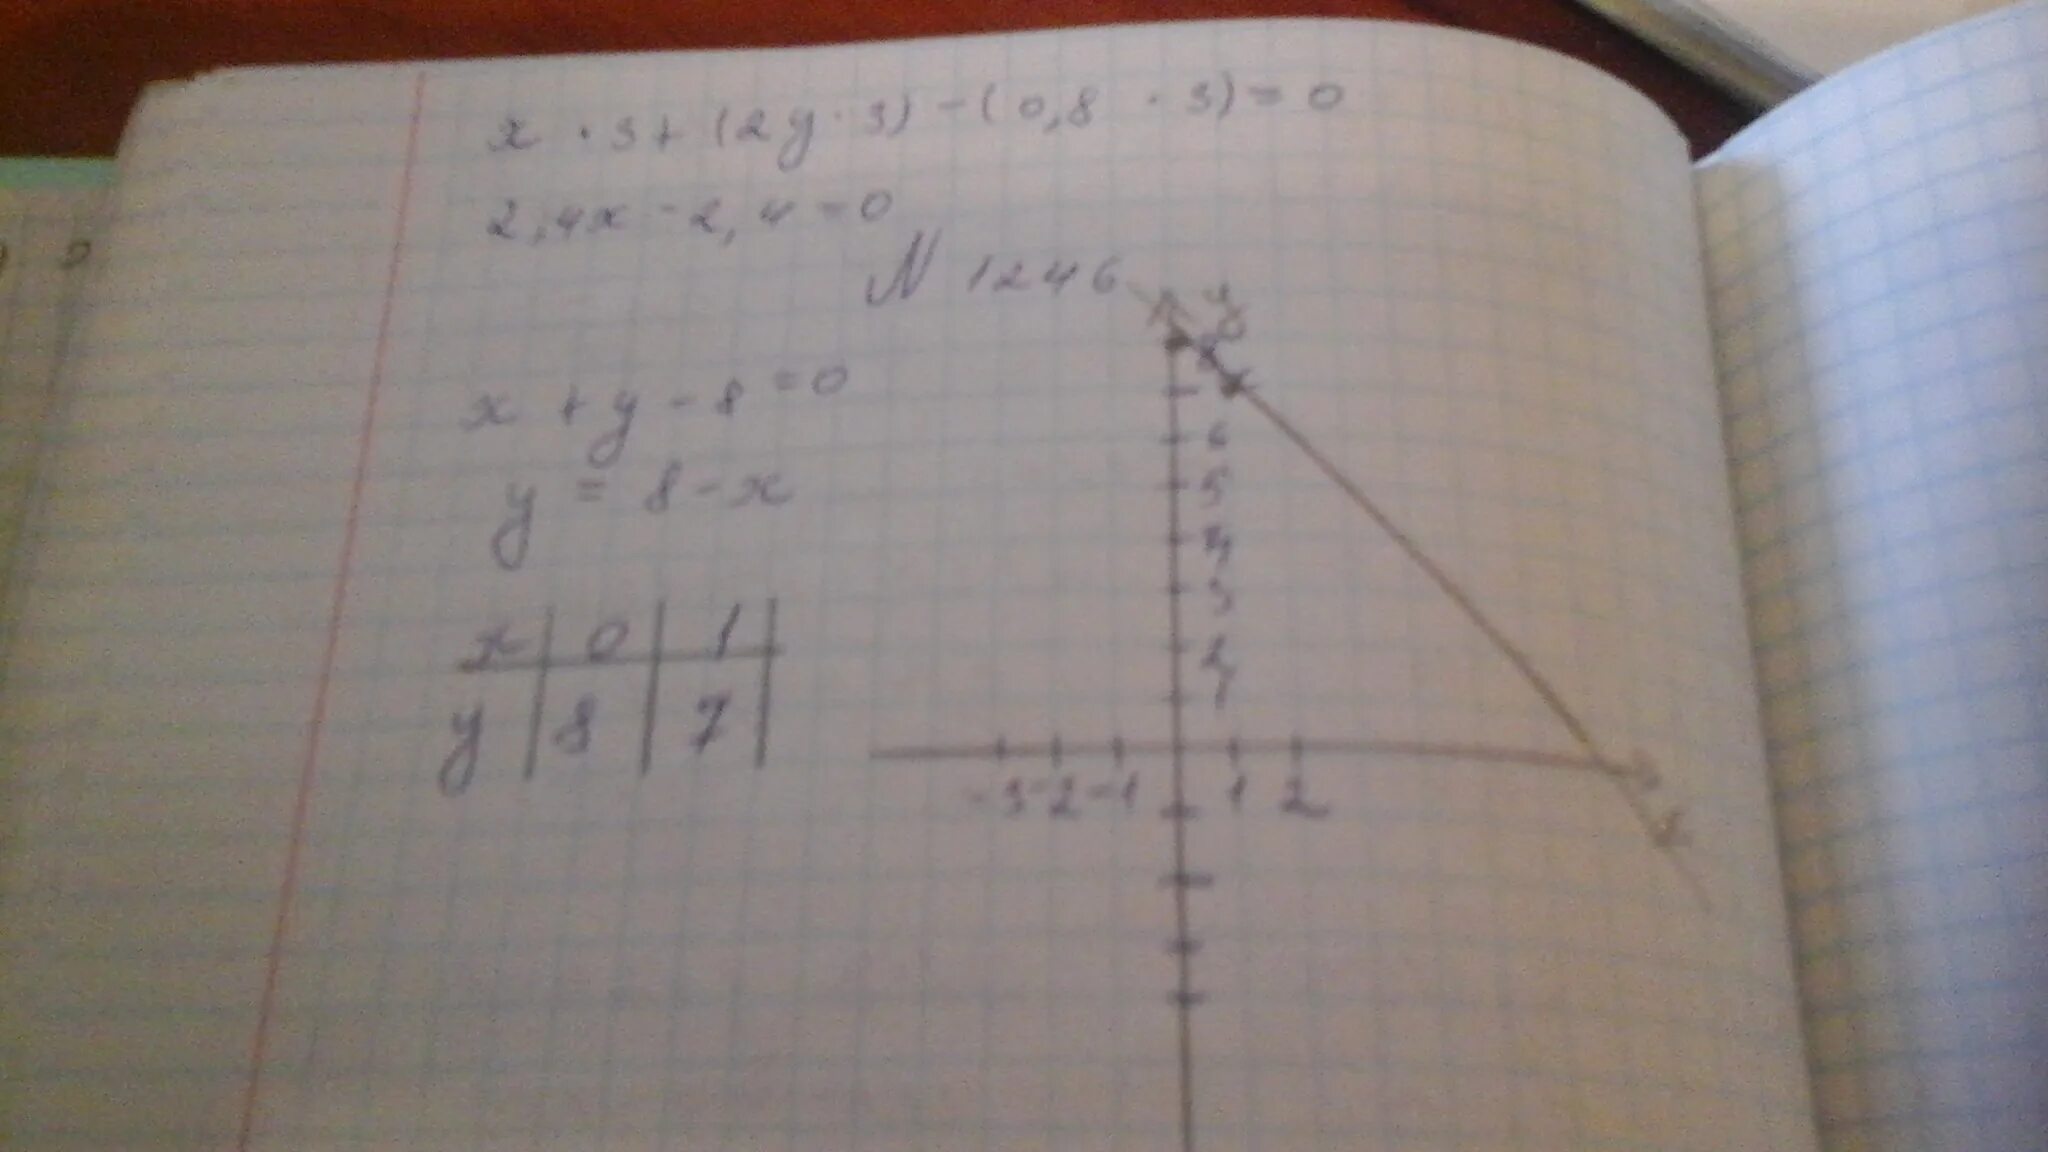 x · 3 + (2y · 3) - (0,8 · 3) = 0
2,4x - 2,4 = 0
N 1246
x + y - 8 = 0
y = 8 - x
x 0 1
y 8 7
y
8
6
5
4
3
2
1
-3 -2 -1 1 2
x